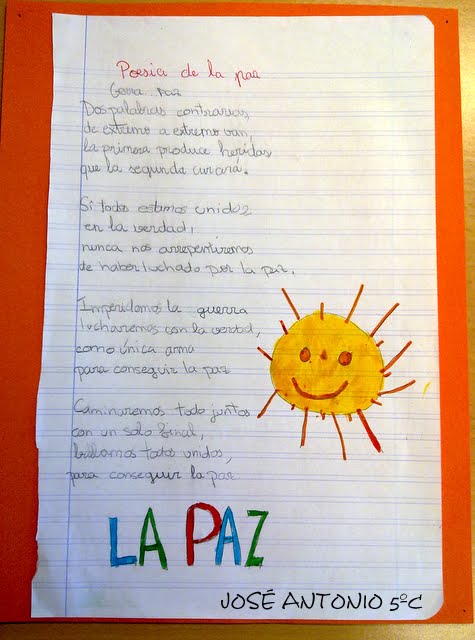 Poesia de la paz
Gerra... paz
Dos palabras contrarias
de extremo a extremo van,
la primera produce heridas
que la segunda curará.
Si todos estamos unidos
en la verdad,
nunca nos arrepentiremos
de haber luchado por la paz.
Impidamos la guerra
lucharemos con la verdad,
como única arma
para conseguir la paz
Caminaremos todo juntos
con un solo final,
todos unidos,
para conseguir la paz
LA PAZ
JOSÉ ANTONIO 5ºC